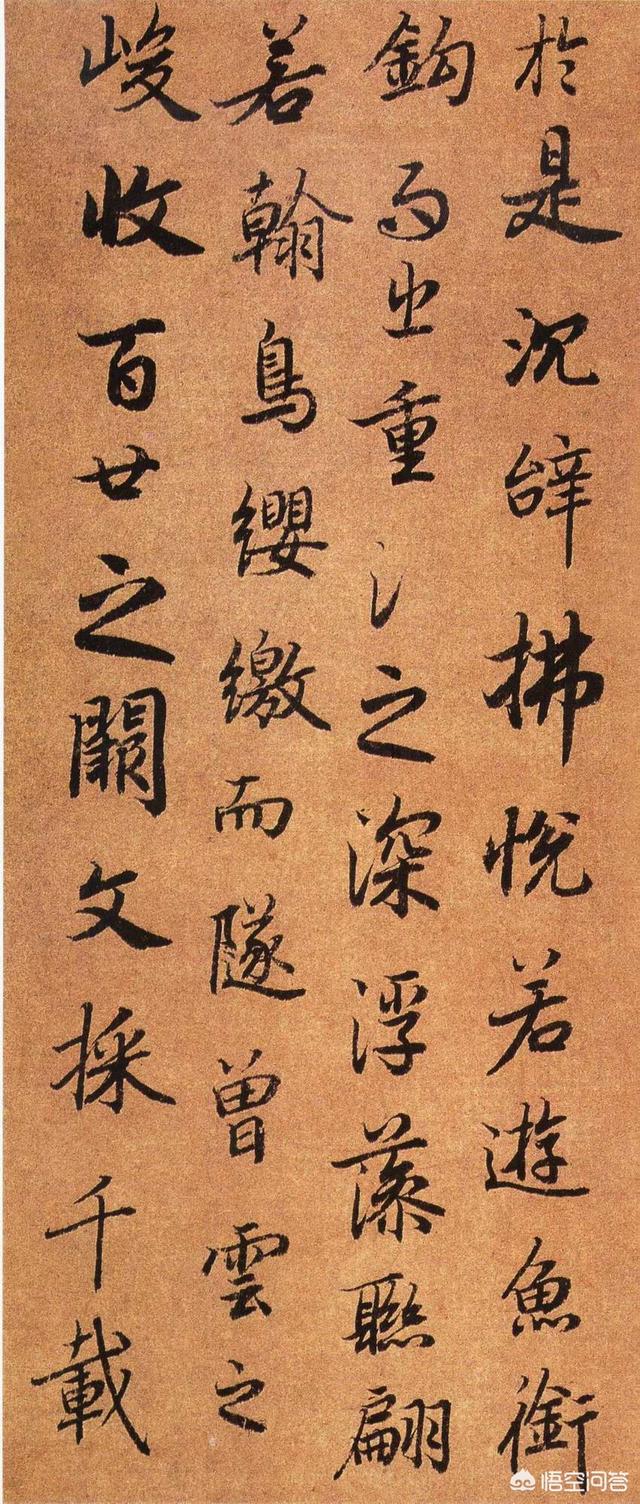 於是沉辝拂悅若遊魚銜
鈎而出重氵之深浮藻聯翩
若翰鳥纓繳而隊曾雲之
峻收百廿之闕文採千載
悟空问答